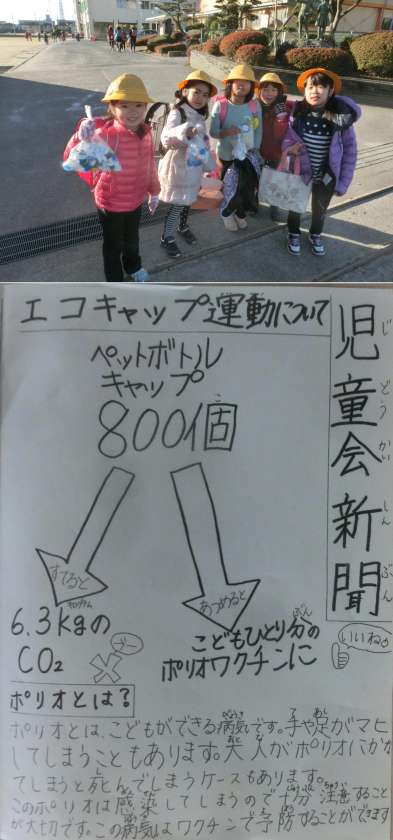 エコキャップ運動について
児童会新聞
じどうかいしんぶん
ペットボトル
キャップ
800個
こ
すてると
あつめると
キログラム
6.3kgの
CO₂
ぶん
こどもひとり分の
ポリオワクチンに
いいね
ポリオとは?
ポリオとは、こどもができる病気です。手や足がマヒ
してしまうこともあります。大人がポリオにかかっ
てしまうと死んでしまうケースもあります。
このポリオは感染してしまうので十分注意すること
が大切です。この病気はワクチンで予防することができます